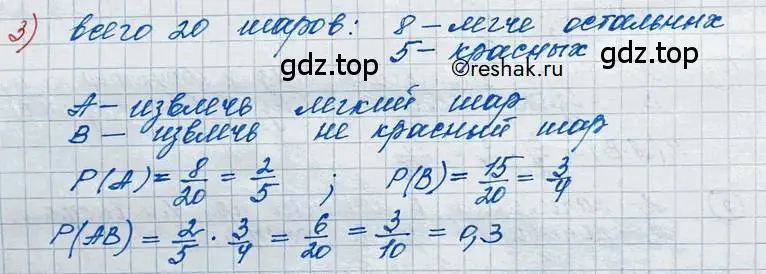 3) всего 20 шаров: 8 – легче остальных
5 – красных
gdz.top gdz.top
©reshak.ru
A – извлечь легкий шар
B – извлечь не красный шар
P(A) = 8/20 = 2/5 ; P(B) = 15/20 = 3/4
P(AB) = 2/5 · 3/4 = 6/20 = 3/10 = 0,3
gdz.top gdz.top